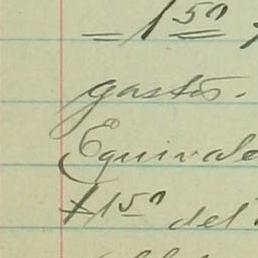 = 1 50
gastos.
Equivale
$1 50 del